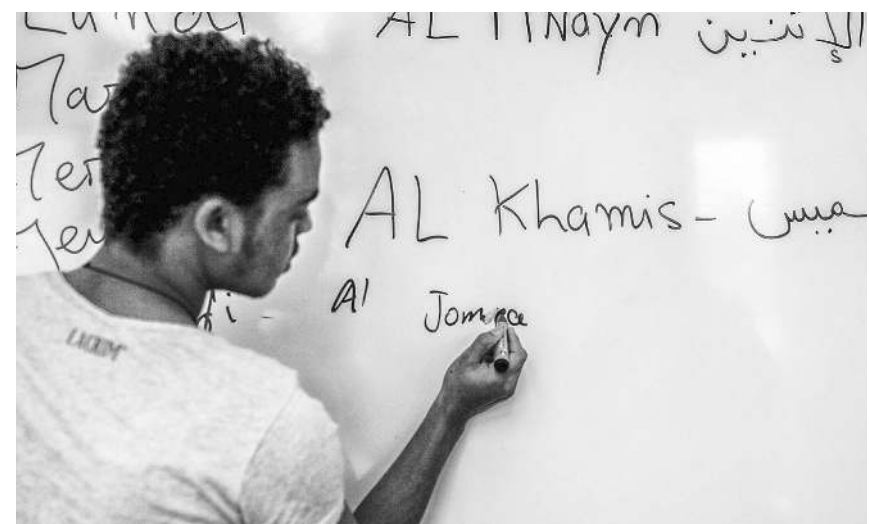 Lundi AL ITNayn الإثنين
Mar
Mer
Jeu AL Khamis - ميس
di - Al Jomaa